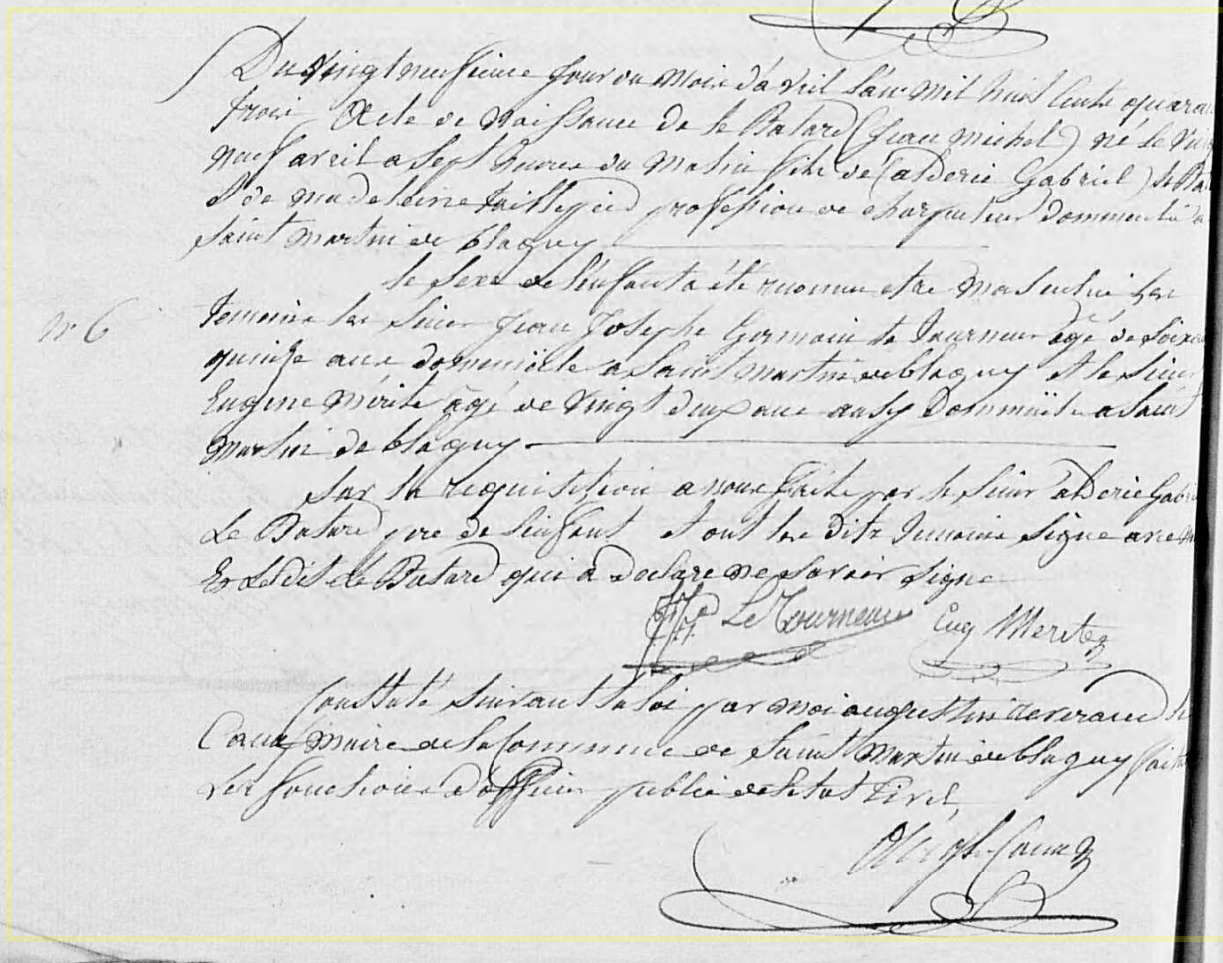 Du vingt neufieme jour du mois d'avril l'an mil huit cents quara
trois Acte de naissance de le Batard (Jean michel) né le vin
neuf avril a sept heures du matin fils de (alderic Gabriel) le Ba
et de madeleine profession de charpentier dommicilié
saint martin de blagny
le sexe de l'enfant a été reconnu etre masculin les
temoins les sieurs Jean Joseph Germain le Tourneur agé de soixa
quinze ans dommiciliè a saint martin de blagny et le sieur
Eugène Mérite âgé de vingt deux ans aussy Dommiciliè a saint
martin de blagny
sur la requisition a nous faite par le sieur alderic Gabri
Le Batard pere de l'infant et ont les dits temoins signé avec
Et Ledit Le Batard qui a declaré ne savoir signe
Le Tourneur Eug Merite
Constaté suivant la loi par moi augustin
Cauf maire de la Commune de saint Martin de blagny fai
Les fonctions d'officier public de l'etat Civil
n° 6